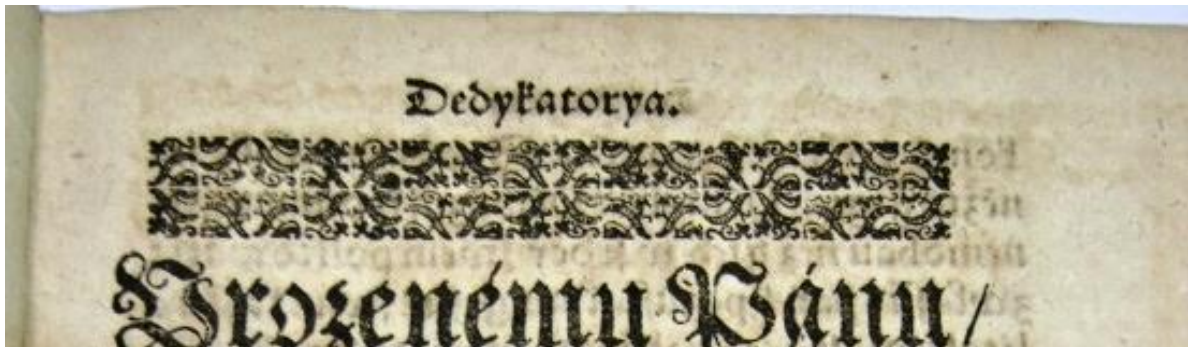 Dedykatorya.
Vrozenému Pánu/